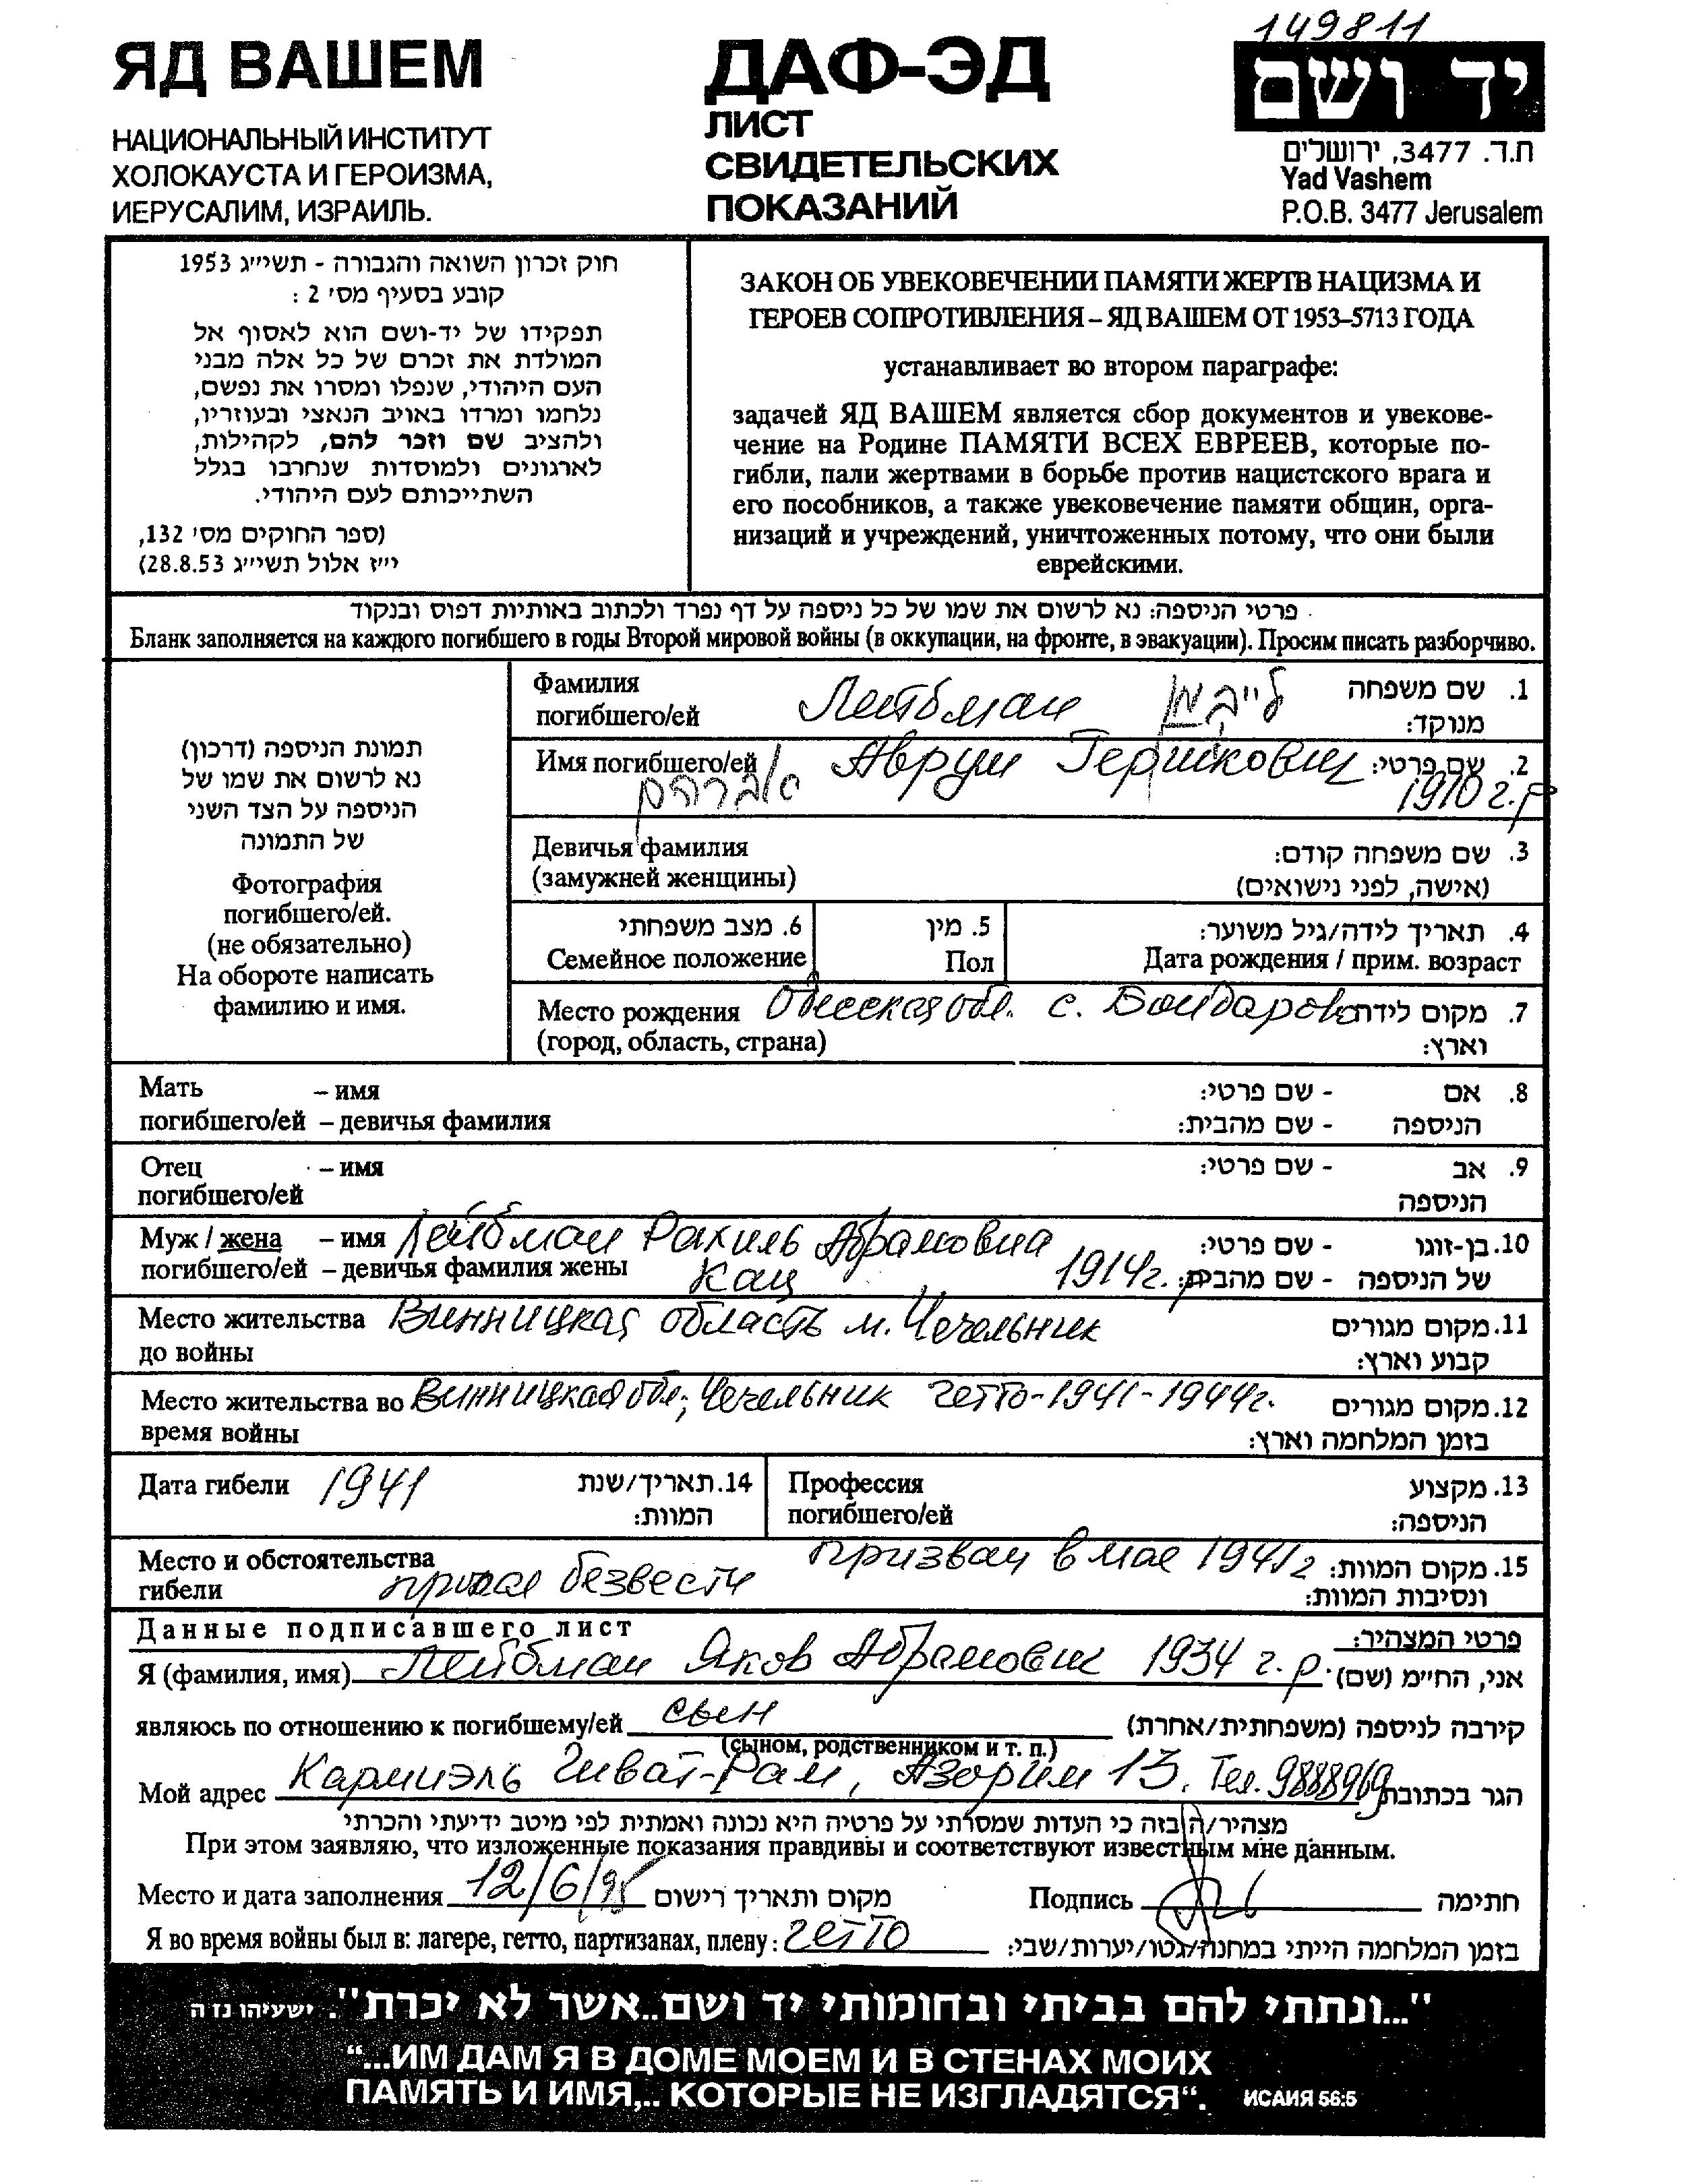 149811
ЯД ВАШЕМ
НАЦИОНАЛЬНЫЙ ИНСТИТУТ
ХОЛОКАУСТА И ГЕРОИЗМА,
ИЕРУСАЛИМ, ИЗРАИЛЬ.
ДАФ-ЭД
ЛИСТ
СВИДЕТЕЛЬСКИХ
ПОКАЗАНИЙ
יד ושם
ת.ד. 3477, ירושלים
Yad Vashem
P.O.B. 3477 Jerusalem
חוק זכרון השואה והגבורה - תשי״ג 1953
קובע בסעיף מס׳ 2 :
תפקידו של יד-ושם הוא לאסוף אל
המולדת את זכרם של כל אלה מבני
העם היהודי, שנפלו ומסרו את נפשם,
נלחמו ומרדו באויב הנאצי ובעוזריו,
ולהציב שם וזכר להם, לקהילות,
לארגונים ולמוסדות שנחרבו בגלל
השתייכותם לעם היהודי.
(ספר החוקים מס׳ 132,
י״ז אלול תשי״ג 28.8.53)
ЗАКОН ОБ УВЕКОВЕЧЕНИИ ПАМЯТИ ЖЕРТВ НАЦИЗМА И
ГЕРОЕВ СОПРОТИВЛЕНИЯ – ЯД ВАШЕМ ОТ 1953–5713 ГОДА
устанавливает во втором параграфе:
задачей ЯД ВАШЕМ является сбор документов и увекове-
чение на Родине ПАМЯТИ ВСЕХ ЕВРЕЕВ, которые по-
гибли, пали жертвами в борьбе против нацистского врага и
его пособников, а также увековечение памяти общин, орга-
низаций и учреждений, уничтоженных потому, что они были
еврейскими.
פרטי הניספה: נא לרשום את שמו של כל ניספה על דף נפרד ולכתוב באותיות דפוס ובנקוד
Бланк заполняется на каждого погибшего в годы Второй мировой войны (в оккупации, на фронте, в эвакуации). Просим писать разборчиво.
תמונת הניספה (דרכון)
נא לרשום את שמו של
הניספה על הצד השני
של התמונה
Фотография
погибшего/ей.
(не обязательно)
На обороте написать
фамилию и имя.
Фамилия Лейбман לייבמן 1. שם משפחה
погибшего/ей מנוקד:
Имя погибшего/ей Аврум Гершкович 2. שם פרטי:
אברהם 1910 г.р
Девичья фамилия 3. שם משפחה קודם:
(замужней женщины) (אישה, לפני נישואים)
6. מצב משפחתי 5. מין 4. תאריך לידה/גיל משוער:
Семейное положение Пол Дата рождения / прим. возраст
Место рождения Одесская обл. с. Бондаровка 7. מקום לידה
(город, область, страна) וארץ:
Мать – имя - שם פרטי: 8. אם
погибшего/ей – девичья фамилия - שם מהבית: הניספה
Отец – имя - שם פרטי: 9. אב
погибшего/ей הניספה
Муж / жена – имя Лейбман Рахиль Абрамовна - שם פרטי: 10. בן-זוגו
погибшего/ей – девичья фамилия жены Кац 1914 г.р - שם מהבית: של הניספה
Место жительства Винницкая область м. Чечельник 11. מקום מגורים
до войны קבוע וארץ:
Место жительства во Винницкая обл; Чечельник гетто-1941-1944г. 12. מקום מגורים
время войны בזמן המלחמה וארץ:
Дата гибели 1941 14. תאריך/שנת Профессия 13. מקצוע
המוות: погибшего/ей הניספה:
Место и обстоятельства призван в мае 1941г 15. מקום המוות:
гибели пропал безвести ונסיבות המוות:
Данные подписавшего лист פרטי המצהיר:
Я (фамилия, имя) Лейбман Яков Абрамович 1934 г.р. אני, החי״מ (שם)
являюсь по отношению к погибшему/ей сын קירבה לניספה (משפחתית/אחרת)
(сыном, родственником и т. п.)
Мой адрес Кармиэль Гиват-Рам, Азорим 13. Тел. 9888969 הגר בכתובת
מצהיר/ה בזה כי העדות שמסרתי על פרטיה היא נכונה ואמתית לפי מיטב ידיעתי והכרתי
При этом заявляю, что изложенные показания правдивы и соответствуют известным мне данным.
Место и дата заполнения 12/6/95 מקום ותאריך רישום Подпись חתימה
Я во время войны был в: лагере, гетто, партизанах, плену: гетто בזמן המלחמה הייתי במחנה/גטו/יערות/שבי:
"...ונתתי להם בביתי ובחומותי יד ושם..אשר לא יכרת". ישעיהו נז ה
“...ИМ ДАМ Я В ДОМЕ МОЕМ И В СТЕНАХ МОИХ
ПАМЯТЬ И ИМЯ,.. КОТОРЫЕ НЕ ИЗГЛАДЯТСЯ“. ИСАИЯ 56:5